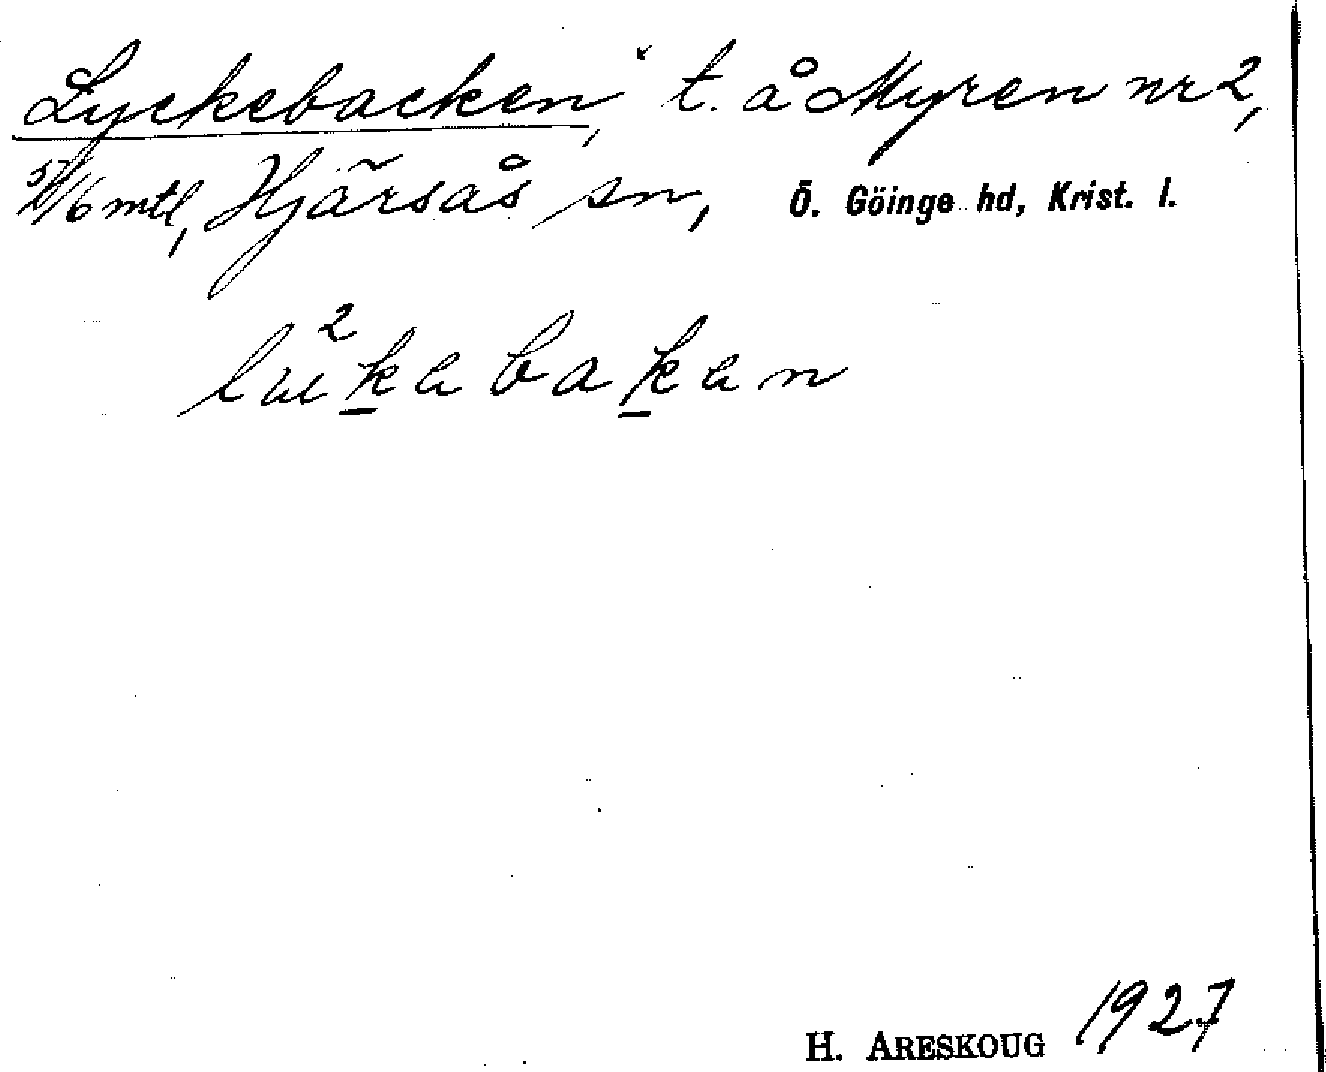 Lyckebacken, t. å Myren nr 2,
5/16 mtl, Hjärsås sn, Ö. Göinge hd, Krist. l.
H. ARESKOUG 1927